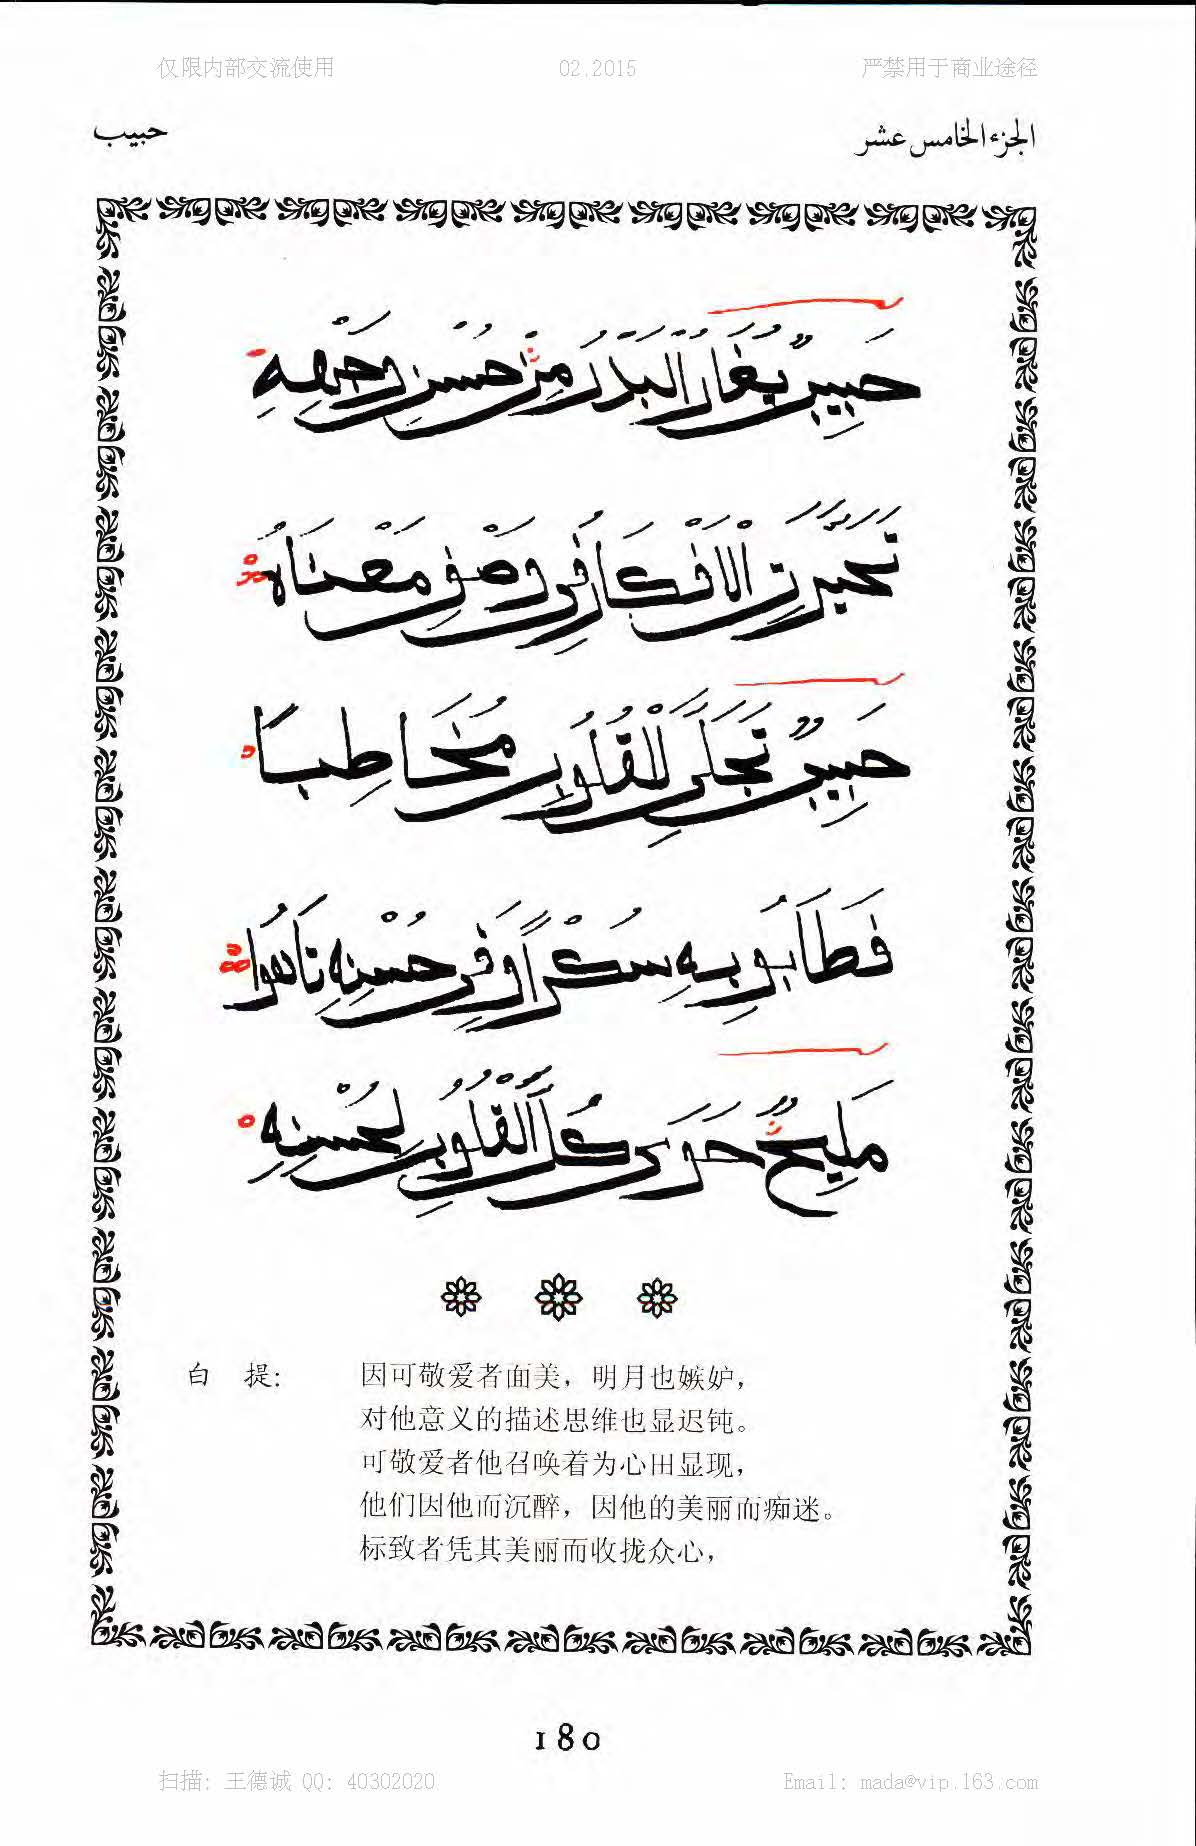 仅限内部交流使用 02.2015 严禁用于商业途径
الجزء الخامس عشر حبيب
حَبِيبٌ يُغَارُ الْبَدْرُ مِنْ حُسْنِ وَجْهِهِ
تَحَيَّرَتِ الْاَفْكَارُ فِي وَصْفِ مَعْنَاهُ
حَبِيبٌ تَجَلَّى لِلْقُلُوبِ مُخَاطِبًا
فَطَابُو بِهِ سُكْرًا وَفِي حُسْنِهِ تَاهُوا
مَلِيحٌ حَوَى كُلَّ الْقُلُوبِ لِحُسْنِهِ
白 提: 因可敬爱者面美，明月也嫉妒，
对他意义的描述思维也显迟钝。
可敬爱者他召唤着为心田显现，
他们因他而沉醉，因他的美丽而痴迷。
标致者凭其美丽而收拢众心，
180
扫描: 王德诚 QQ: 40302020 Email: mada@vip.163.com